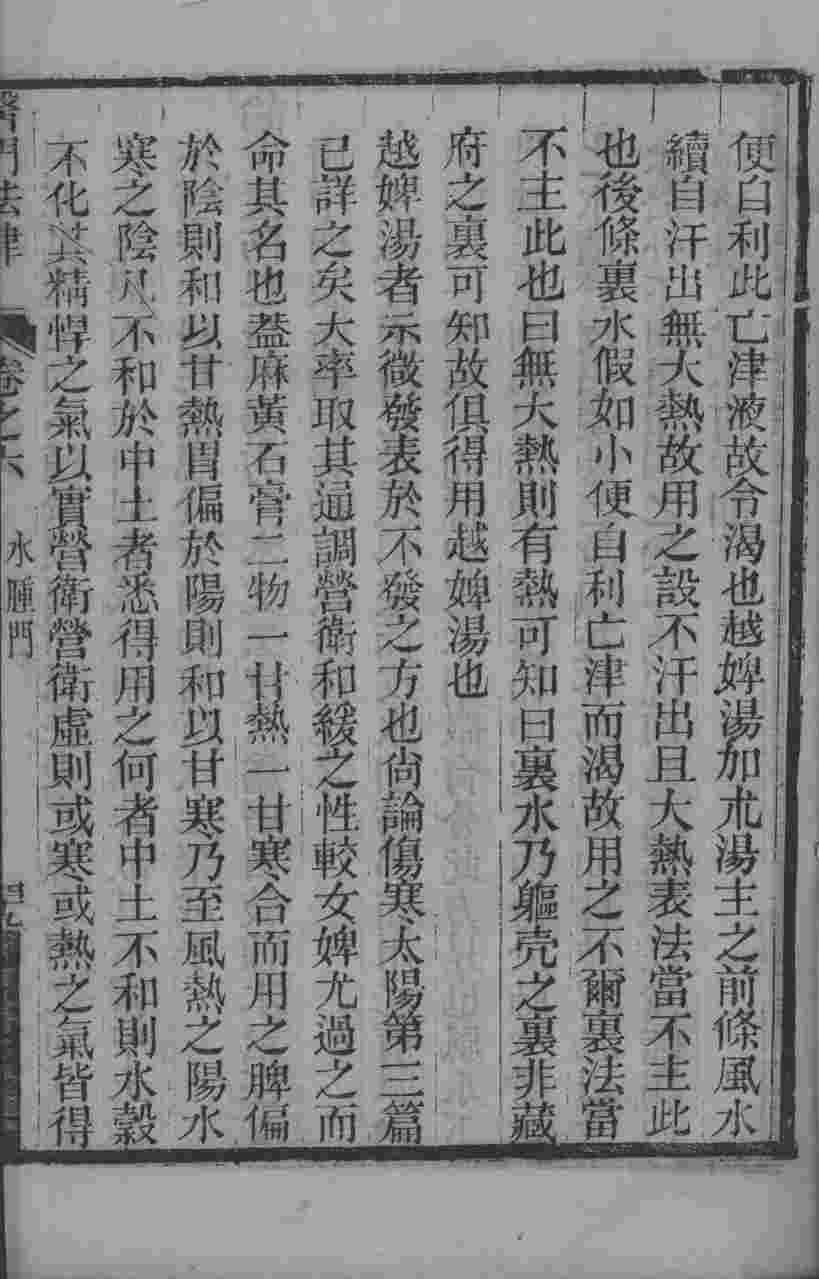 便自利此亡津液故令渴也越婢湯加朮湯主之前條風水
續自汗出無大熱故用之設不汗出且大熱表法當不主此
也後條裏水假如小便自利亡津而渴故用之不爾裏法當
不主此也曰無大熱則有熱可知曰裏水乃軀壳之裏非藏
府之裏可知故俱得用越婢湯也
越婢湯者示微發表於不發之方也尙論傷寒太陽第三篇
已詳之矣大率取其通調營衛和緩之性較女婢尤過之而
命其名也葢麻黃石膏二物一甘熱一甘寒合而用之脾偏
於陰則和以甘熱胃偏於陽則和以甘寒乃至風熱之陽水
寒之陰凡不和於中土者悉得用之何者中土不和則水穀
不化其精悍之氣以實營衛營衛虛則或寒或熱之氣皆得
醫門法律 卷之六 水腫門